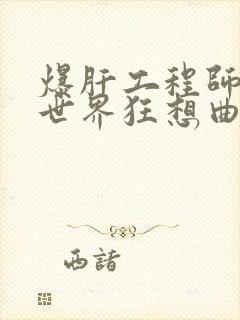 爆肝工程師
世界狂想曲
西諸